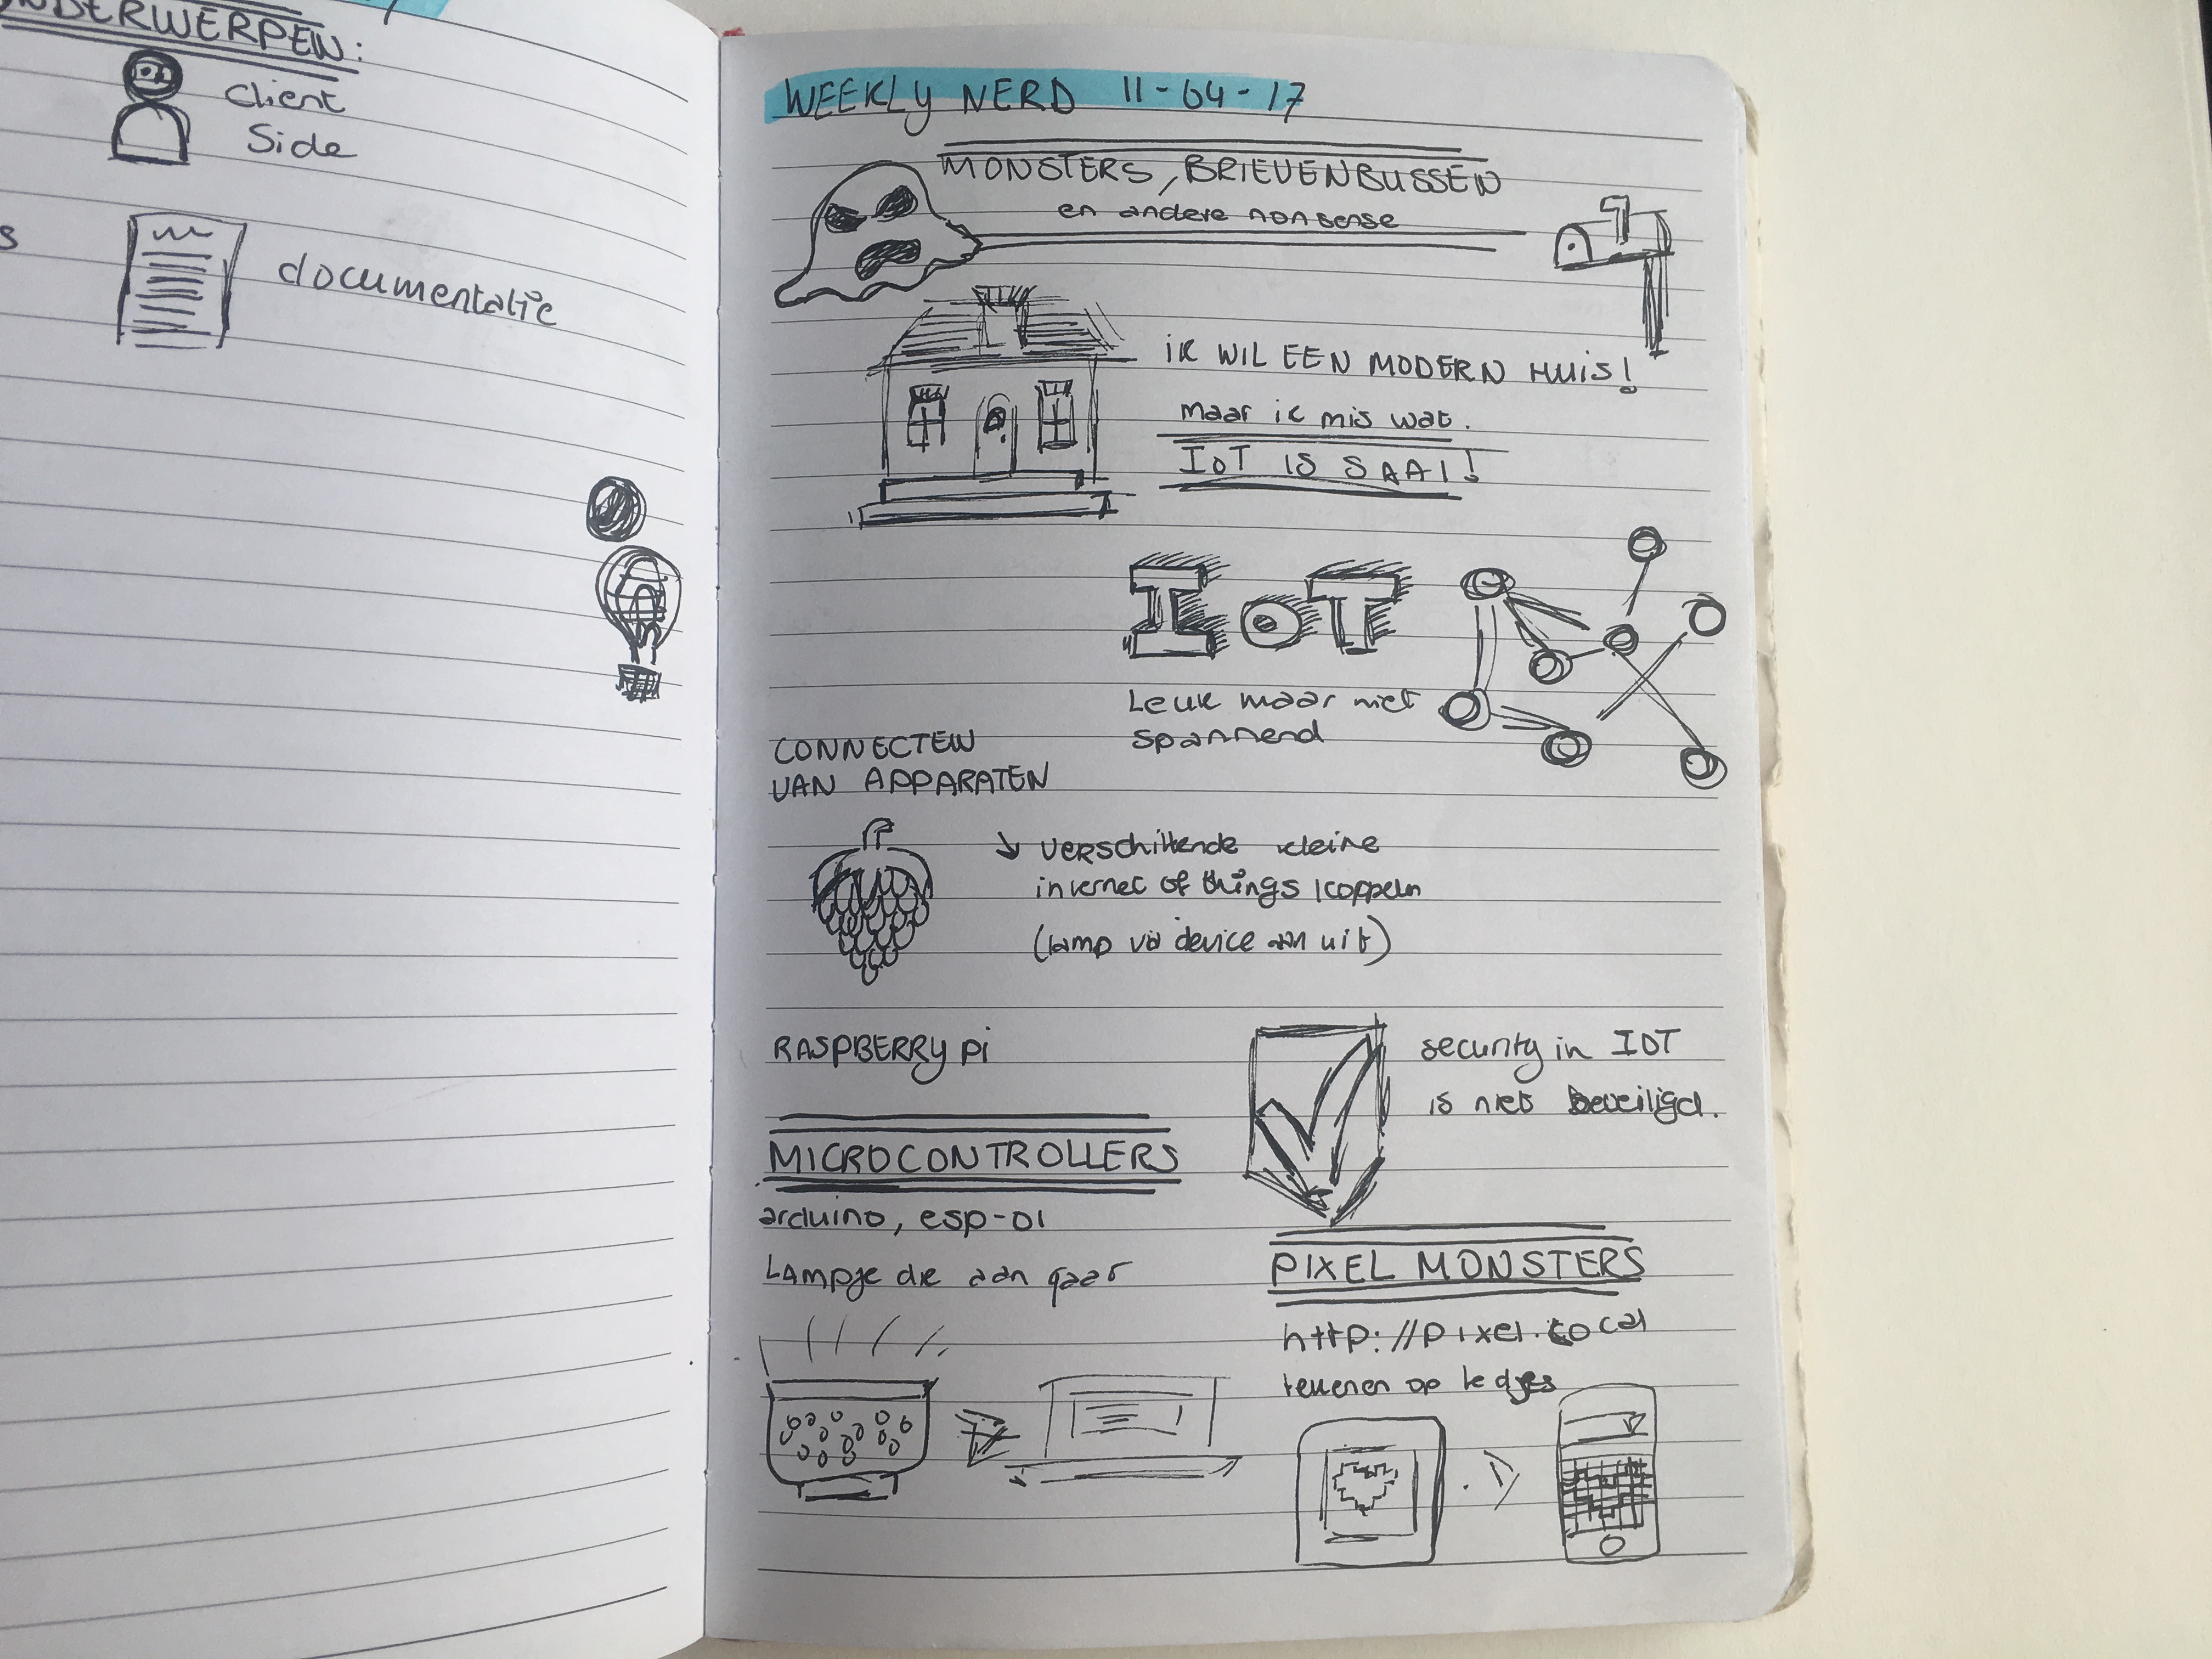 ONDERWERPEN:
Client
Side
s
documentatie
WEEKLY NERD 11-04-17
MONSTERS, BRIEVENBUSSEN
en andere nonsense
iK WIL EEN MODERN HUIS!
maar ik mis wat.
IOT IS SAAI!
IoT
Leuk maar niet
spannend
CONNECTEN
VAN APPARATEN
↘ verschillende kleine
internet of things koppeln
(lamp via device aan uit)
RASPBERRY Pi
security in IOT
is niet beveiligd.
MICROCONTROLLERS
arduino, esp-01
Lampje die aan gaat
PIXEL MONSTERS
http://pixel.local
tekenen op ledjes